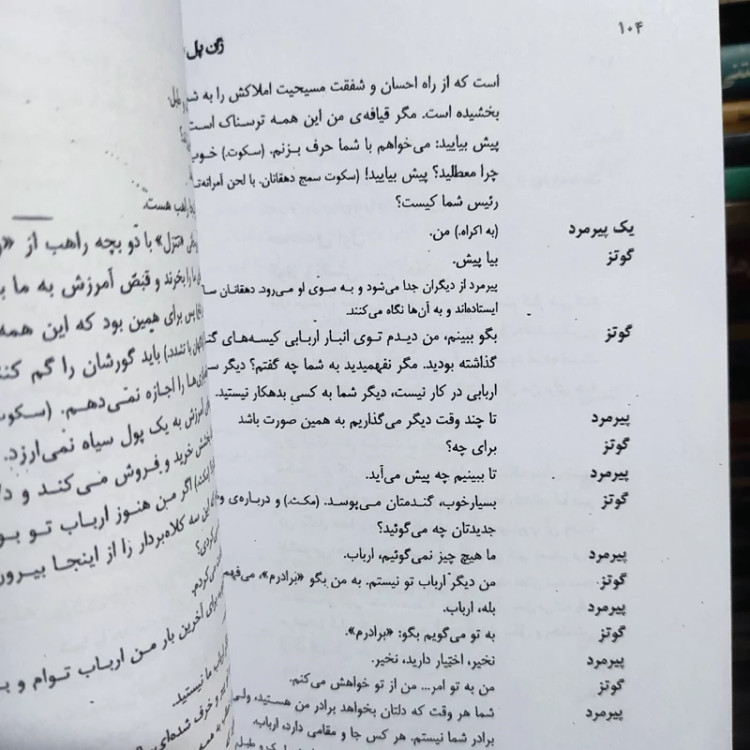 ۱۰۴
ژان پل
است که از راه احسان و شفقت مسیحیت املاکش را به شما
بخشیده است. مگر قیافه‌ی من این همه ترسناک است
پیش بیایید: می‌خواهم با شما حرف بزنم. (سکوت.) خوب
چرا معطلید؟ پیش بیایید! (سکوت سمج دهقانان. با لحن آمرانه‌تر
رئیس شما کیست؟
یک پیرمرد (به اکراه.) من.
گوتز بیا پیش.
پیرمرد از دیگران جدا می‌شود و به سوی او می‌رود. دهقانان
ایستاده‌اند و به آن‌ها نگاه می‌کنند.
گوتز بگو ببینم، من دیدم توی انبار اربابی کیسه‌های
گذاشته بودید. مگر نفهمیدید به شما چه گفتم؟ دیگر
اربابی در کار نیست، دیگر شما به کسی بدهکار نیستید.
پیرمرد تا چند وقت دیگر می‌گذاریم به همین صورت باشد
گوتز برای چه؟
پیرمرد تا ببینیم چه پیش می‌آید.
گوتز بسیارخوب، گندمتان می‌پوسد. (مکث.) و درباره‌ی
جدیدتان چه می‌گوئید؟
پیرمرد ما هیچ چیز نمی‌گوئیم، ارباب.
گوتز من دیگر ارباب تو نیستم. به من بگو «برادرم»، می‌فهم
پیرمرد بله، ارباب.
گوتز به تو می‌گویم بگو: «برادرم».
پیرمرد نخیر، اختیار دارید، نخیر.
گوتز من به تو امر... من از تو خواهش می‌کنم.
پیرمرد شما هر وقت که دلتان بخواهد برادر من هستید، ولی
برادر شما نیستم. هر کس جا و مقامی دارد، ارباب.
راهب هست.
«تتزل» با دو بچه راهب از
را بخرند و قبض آمرزش به ما
پس برای همین بود که این همه
باید گورشان را گم کنند
را اجازه نمی‌دهم. (سکوت
آمرزش به یک پول سیاه نمی‌ارزد.
خرید و فروش می‌کند و
اگر من هنوز ارباب تو
سه کلاه‌بردار را از اینجا بیرون
می‌کردم.
برای آخرین بار من ارباب توام و
ارباب ما نیستید.
و خرف شده‌ای